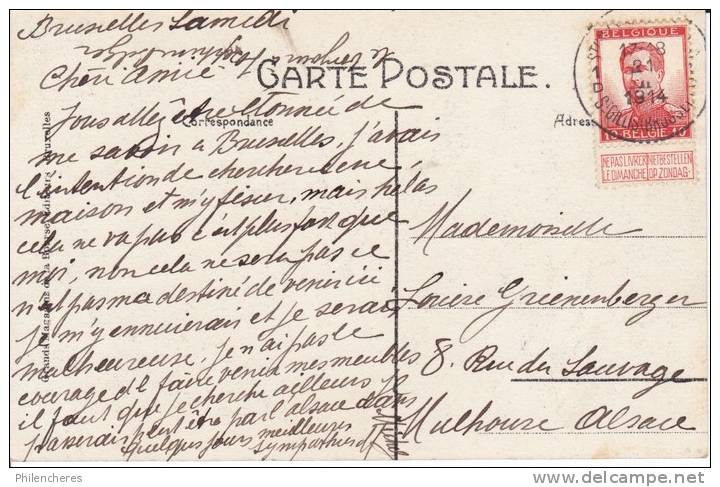 Bruxelles Samedi
Cheri Amie
CARTE POSTALE.
Correspondance
Vous allez être étonnée de
me savoir à Bruxelles, j'avais
l'intention de chercher une
maison et m'y fixer, mais helas
cela ne va pas c'est plus fort que
moi, non cela ne sera pas ce
n'est pas ma destiné de venir ici
je m'y ennuierais et je serais
malheureuse, je n'ai pas le
courage de faire venir mes meubles
il faut que je cherche ailleurs je
passerais peut être par l'alsace dans
quelques jours meilleures
sympathies
Grands Magasins de la Bourse, Bruxelles
Adres
BELGIQUE
17-18
21
1914
10 BELGIË 10
NE PAS LIVRER NIET BESTELLEN
LE DIMANCHE OP ZONDAG
Mademoiselle
Grienenberger
8. Rue du Sauvage
Mulhouse Alsace
Philencheres
www.delcampe.net